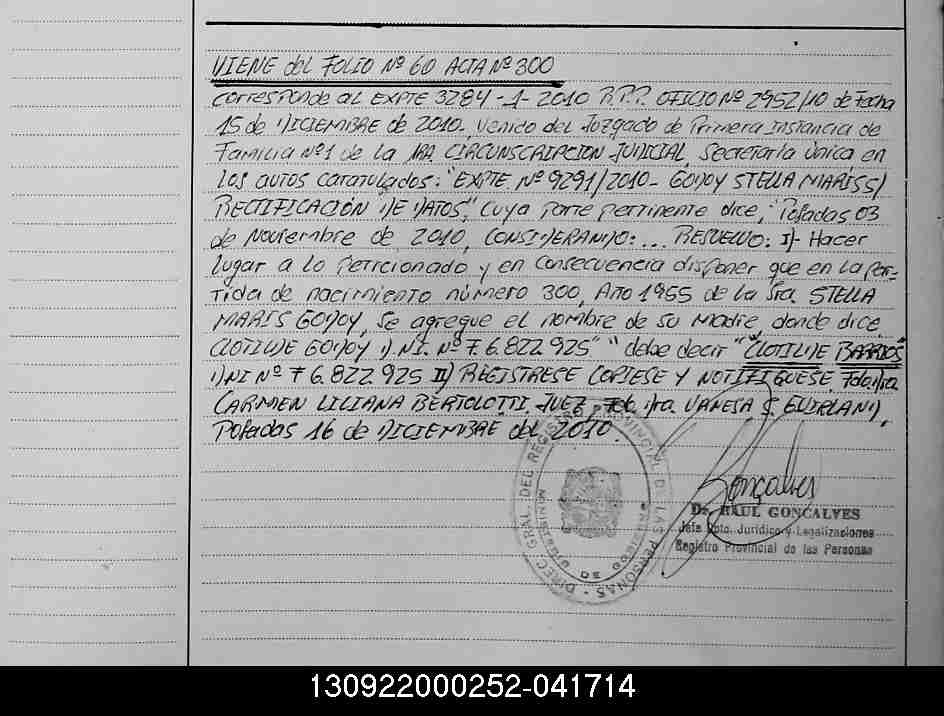 VIENE del FOLIO Nº 60 ACTA Nº 300
Corresponde al EXPTE 3284-1-2010 R.P.P. OFICIO Nº 2952/10 de Fecha
15 de DICIEMBRE de 2010, venido del Juzgado de Primera Instancia de
Familia Nº1 de la 1RA. CIRCUNSCRIPCION JUDICIAL, Secretaría Única en
los autos caratulados: "EXPTE Nº 9291/2010- GODOY STELLA MARIS S/
RECTIFICACIÓN DE DATOS", Cuya parte pertinente dice, "Posadas 03
de Noviembre de 2010, CONSIDERANDO: ... RESUELVO: I)- Hacer
lugar a lo peticionado y en consecuencia disponer que en la Par-
tida de nacimiento número 300, Año 1955 de la Sra. STELLA
MARIS GODOY, Se agregue el nombre de su Madre, donde dice
CLOTILDE GODOY D.NI. Nº 7.6.822.925" "debe decir "CLOTILDE BARRIOS"
DNI Nº 7 6.822.925 II) REGISTRESE COPIESE Y NOTIFIQUESE. Fdo. Dra.
CARMEN LILIANA BERTOLOTTI. JUEZ, Fdo. Dra. VANESA S. GUIRLAND,
Posadas 16 de DICIEMBRE del 2010.
DIREC. GRAL. DEL REGISTRO PROVINCIAL DE LAS PERSONAS
Gonçalves
Dr. RAUL GONCALVES
Jefe Dpto. Jurídico y Legalizaciones
Registro Provincial de las Personas
130922000252-041714